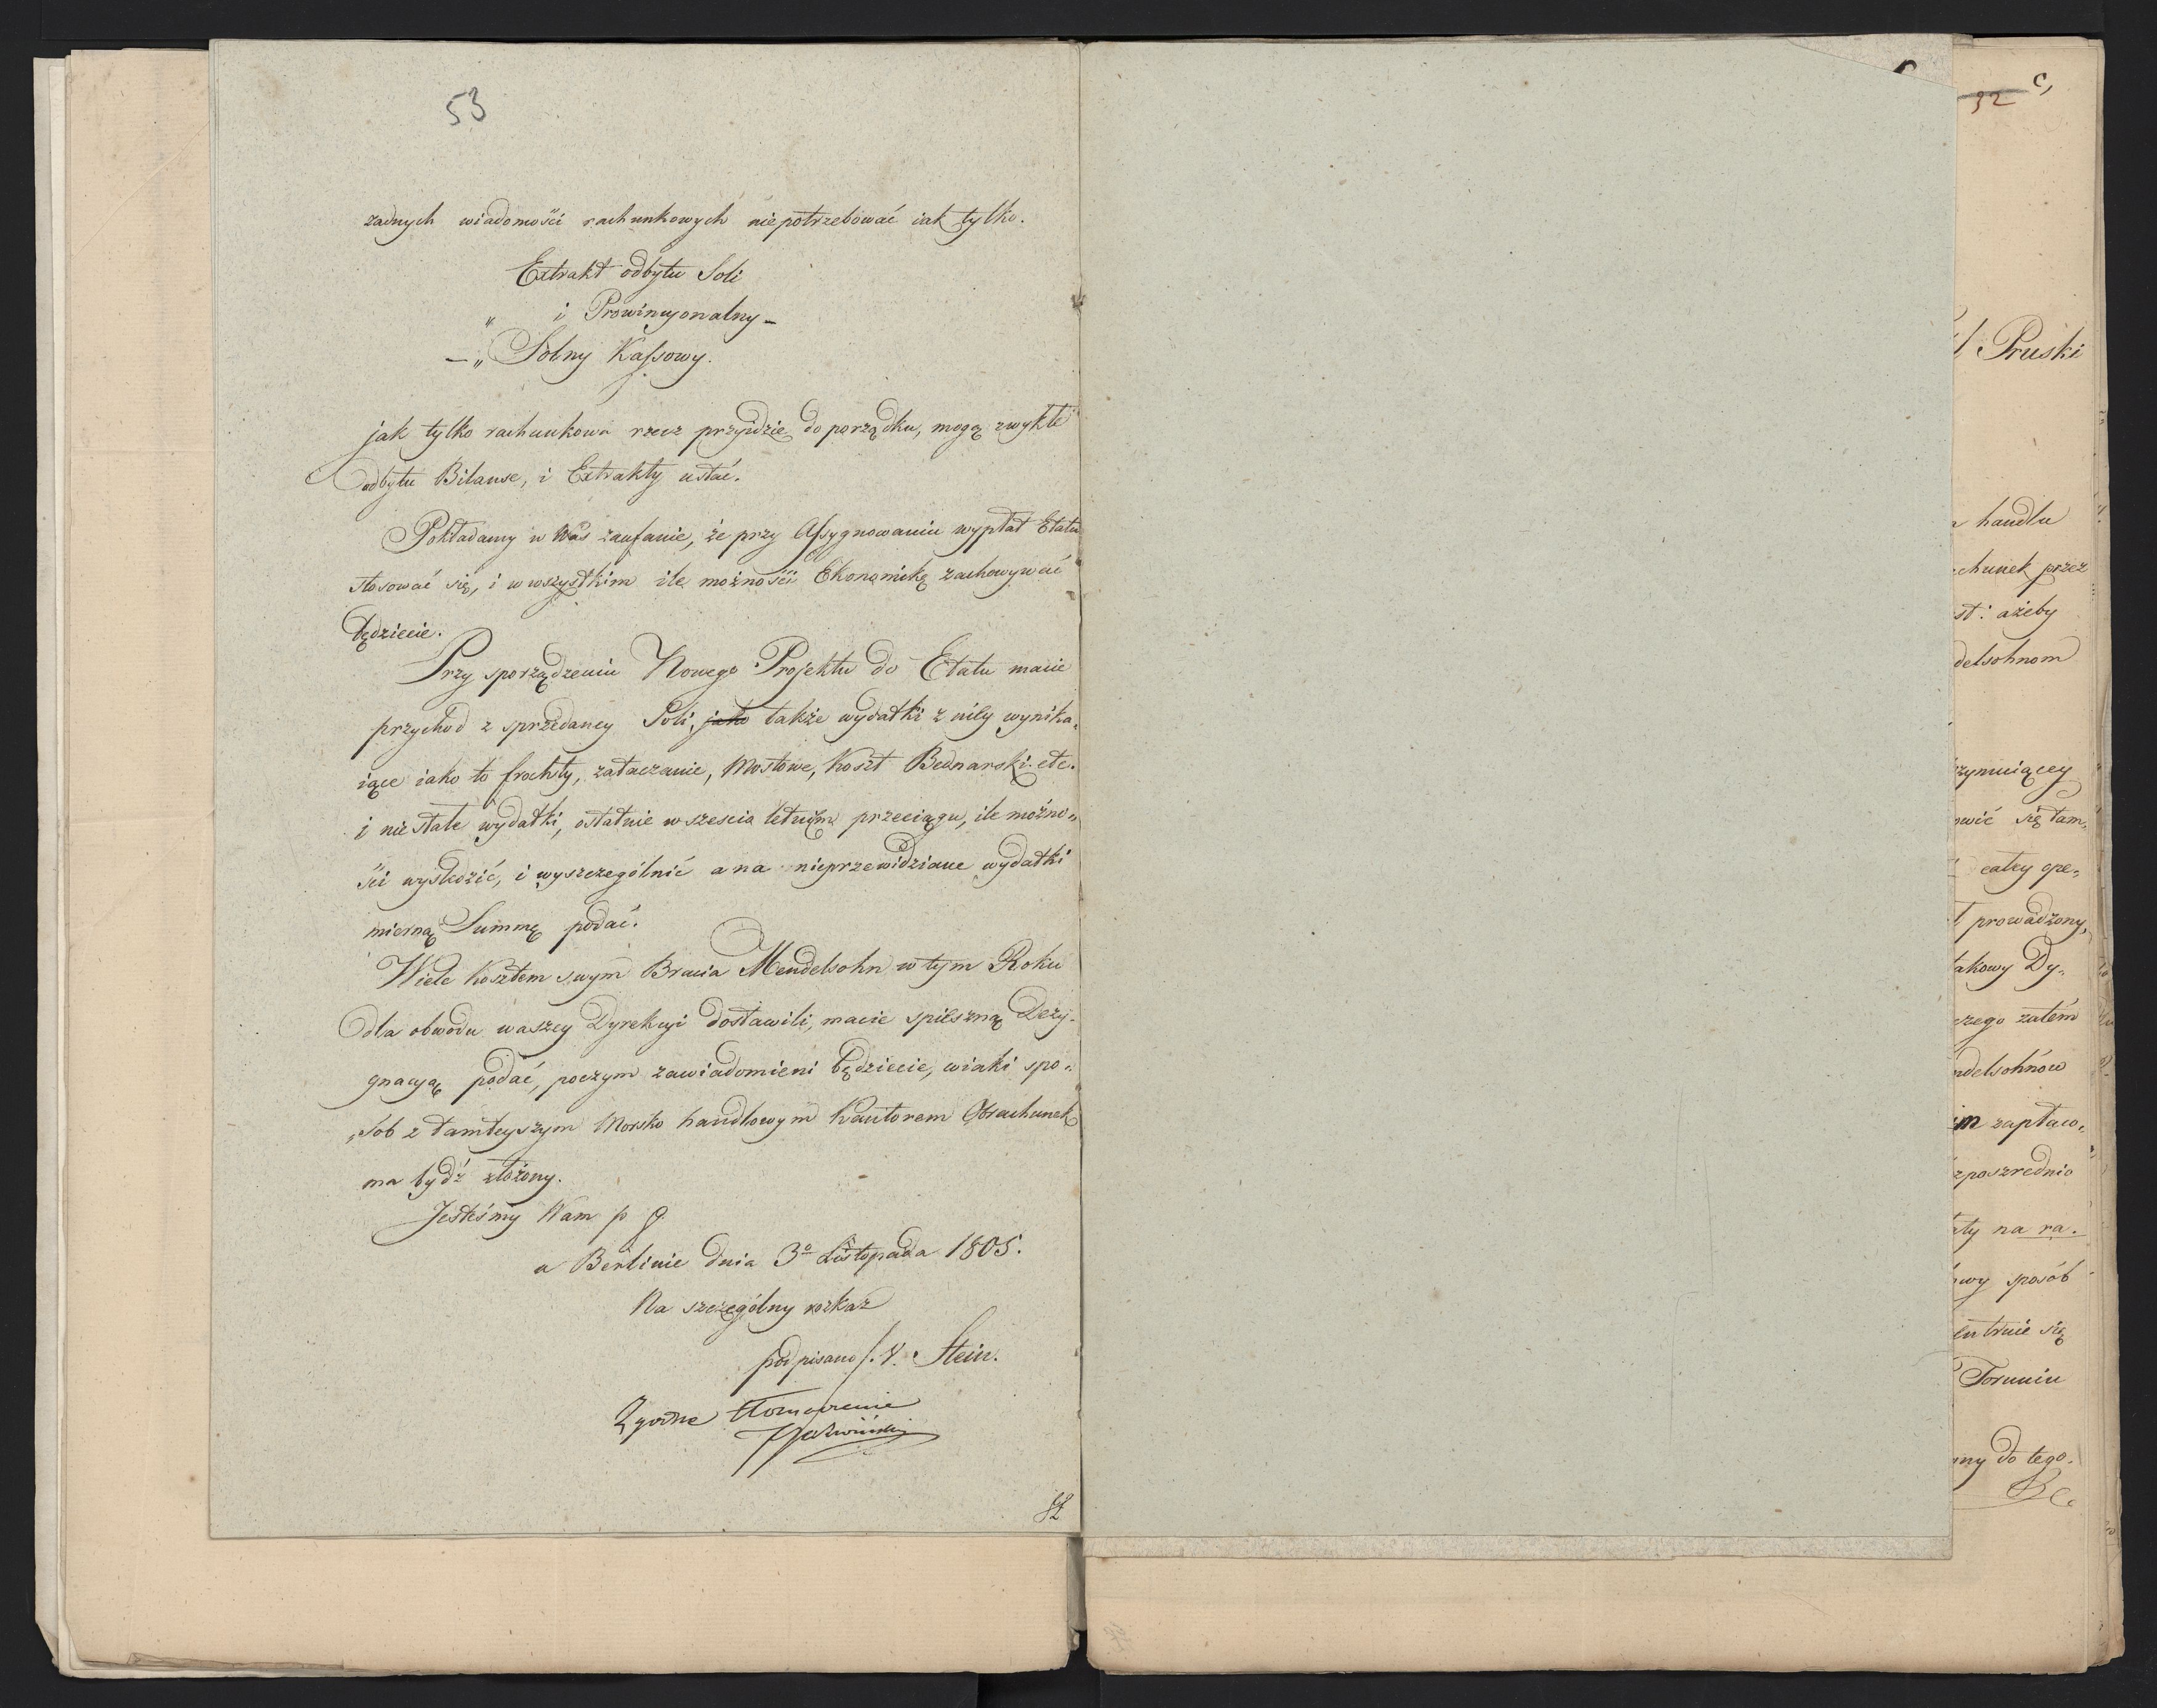 53
zadnych wiadomości rachunkowych niepotrzebować iak tylko.
Extrakt odbytu Soli
„ i Prowincyonalny –
– „ Solny Kassowy.
jak tylko rachunkowa rzecz przyidzie do porządku, mogą zwykłe
odbytu Bilanse, i Extrakty ustać.
Pokładamy w Was zaufanie, że przy Assygnowaniu wypłat Etatu
stosować się, i w wszystkim ile możności Ekonomikę zachowywać
będziecie.
Przy sporządzeniu Nowego Projektu do Etatu macie
przychod z sprzedaney Soli, jako także wydatki z niey wynika„
iące iako to frachty, zataczanie, Mostowe, Koszt Bednarski etc.
i niestałe wydatki, ostatnie w szescio letnim przeciągu, ile możno„
ści wysledzić, i wyszczególnić a na nieprzewidziane wydatki
mierną Summę podać.
Wiele kosztem swym Bracia Mendelsohn w tym Roku
dla obwodu waszey Dyrekcyi dostawili, macie spieszną Dezy„
gnacyą podać, poczym zawiadomieni będziecie, wiaki spo„
„sob z tamteyszym Morsko handlowym Kantorem Obrachunek
ma bydź złożony.
Jesteśmy Wam p p
w Berlinie dnia 3º Listopada 1805.
Na szczególny rozkaz
podpisano /. V. Stein.
Zgodne tłomaczenie
82
32
Pruski
handlu
chunek przez
st: ażeby
delsohnom
rzymuiącey
owić się tam„
całey ope„
prowadzony,
takowy Dy„
czego zatém
ndelsohnów
im zapłaco„
zposzrednio
aty na ra.
owy sposób
entruie się
Toruniu
nny do tego.